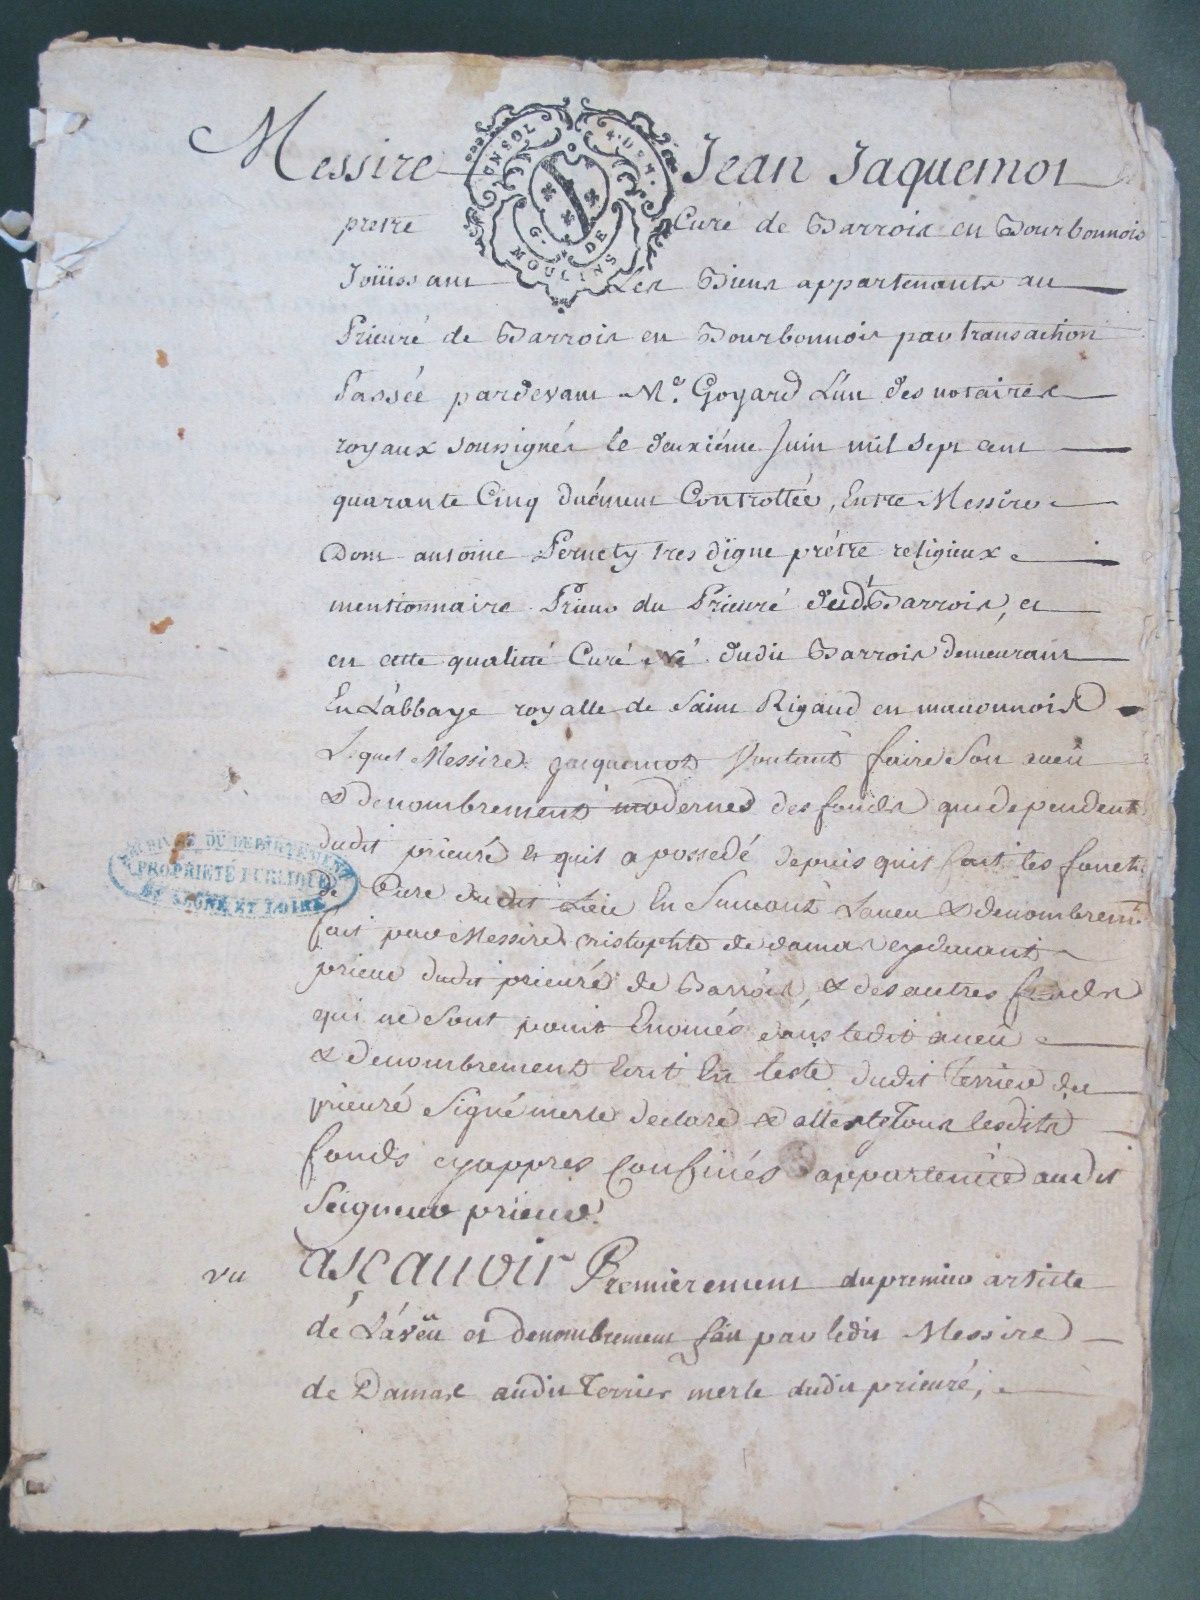 Messire Jean Jaquemot
pretre Curé de Barrois en Bourbonnois
Joüissant Les Biens appartenants au
Prieuré de Barrois en Bourbonnois par transaction
Passée pardevant Me. Goyard L'un des notaires
royaux soussignés le deuxiéme Juin mil sept cent
quarante Cinq duëment Controllée, Entre Messire
Dom antoine Pernety tres digne prétre religieux
mentionnaire Prieur du Prieuré dudt Barrois, et
en cette qualitté Curé Né dudit Barrois demeurant
En L'abbaye royalle de Saint Rigaud en maconnois
Lequel Messire jacquemot Voulant faire Son aueü
& denombrement modernes des fonds que dependent
dudit prieuré et quil a possedé depuis quil fait les fonct.
de Cure dudit Lieu En Suiuant Laueu & denombremt
fait par Messire cristophle de damas cydeuant
prieur dudit prieuré de Barrois, & des autres fonds
qui ne Sont point Enomés dans ledit aueü
& denombrement Ecrit En teste dudit Terrier du
prieuré Signé merle declare & atteste Tous lesdits
fonds cyappres Confinés appartenir audit
Seigneur prieur.
vu
ascauoir Premierement du premier article
de L'avëu et denombrement fait par ledit Messire
de Damas audit Terrier merle dudit prieuré,
G. MOULINS DE
4. DEN.
ARCHIVES DU DEPARTEMENT
PROPRIÉTÉ PUBLIQUE
DE SAONE ET LOIRE